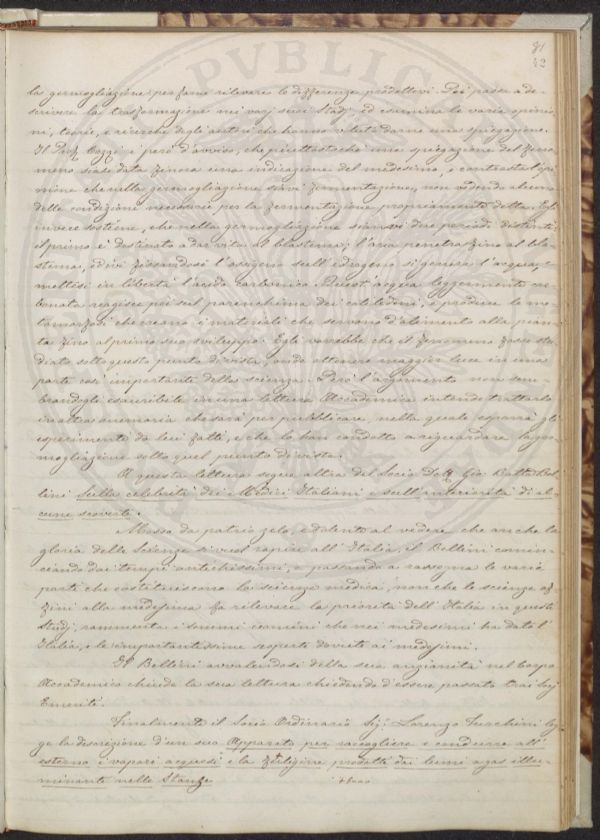 81
42
la germogliazione per farne rilevare le differenze prodottevi. Poi passa a de-
scrivere la trasformazione nei varj suoi stadj, ed esamina le varie opinio-
ni, teorie, e ricerche degli autori che hanno voluto darne una spiegazione.
Il Prof. Cozzi è però d'avviso, che piuttostoche una spiegazione del feno-
meno siasi data finora una indicazione del medesimo, e contrasta l'opi-
nione che nella germogliazione siavi fermentazione, non vedendo alcuna
delle condizioni necessarie per la fermentazione propriamente detta. Egli
invece sostiene, che nella germogliazione sianvi due periodi distinti;
il primo è destinato a dar vita al blastema; l'aria penetra fino al bla-
stema, ed ivi fissandosi l'ossigeno sull'idrogeno si genera l'acqua, e
mettesi in libertà l'acido carbonico. Quest'acqua leggermente car-
bonata reagisce poi sul parenchima dei cotiledoni, e produce le me-
tamorfosi che creano i materiali che servono d'alimento alla pian-
ta fino al primo suo sviluppo. Egli vorrebbe che il fenomeno fosse stu-
diato sotto questo punto di vista, onde ottenere maggior luce in una
parte così importante della scienza. Però l'argomento non sem-
brandogli esauribile in una lettura Accademica intende trattarlo
in altra memoria che sarà per pubblicare, nella quale esporrà gli
esperimenti da lui fatti, e che lo han condotto a riguardare la ger-
mogliazione sotto quel punto di vista.
A questa lettura segue altra del Socio Dott. Gio. Batt. Bel-
lini Sulla celebrità dei Medici Italiani e sull'anteriorità di al-
cune scoverte.
Mosso da patrio zelo, e dolente al vedere che anche la
gloria delle Scienze si vuol rapire all'Italia, il Bellini comin-
ciando dai tempi antichissimi, e passando a rassegna le varie
parti che costituiscono la scienza medica, non che le scienze af-
fini alla medesima fa rilevare la priorità dell'Italia in questi
studj, rammenta i sommi uomini che nei medesimi ha dato l'
Italia, e le importantissime scoperte dovute ai medesimi.
Il Bellini avvalendosi della sua anzianità nel Corpo
Accademico chiude la sua lettura chiedendo d'essere passato tra i Socj
Emeriti.
Finalmente il Socio Ordinario Sig. Lorenzo Turchini leg-
ge la descrizione d'un suo Apparato per raccogliere e condurre all'
esterno i vapori acquosi e la fuliggine prodotti dai lumi a gas illu-
minante nelle Stanze